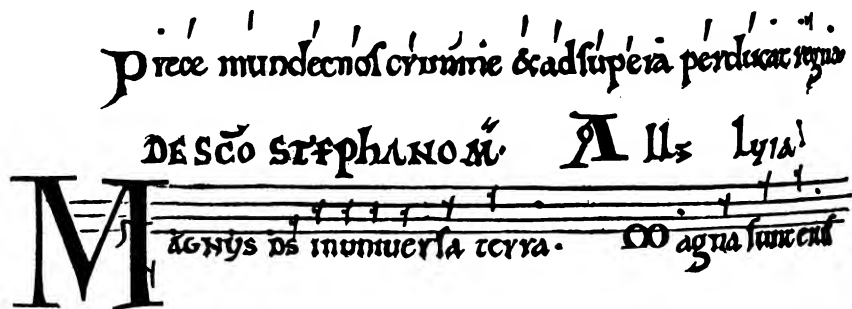 Prece mundet nos crimine & ad supera perducat regna
DE SCO STEPHANO M. All's lyia
MAGNUS DS in universa terra. Magna sunt eius